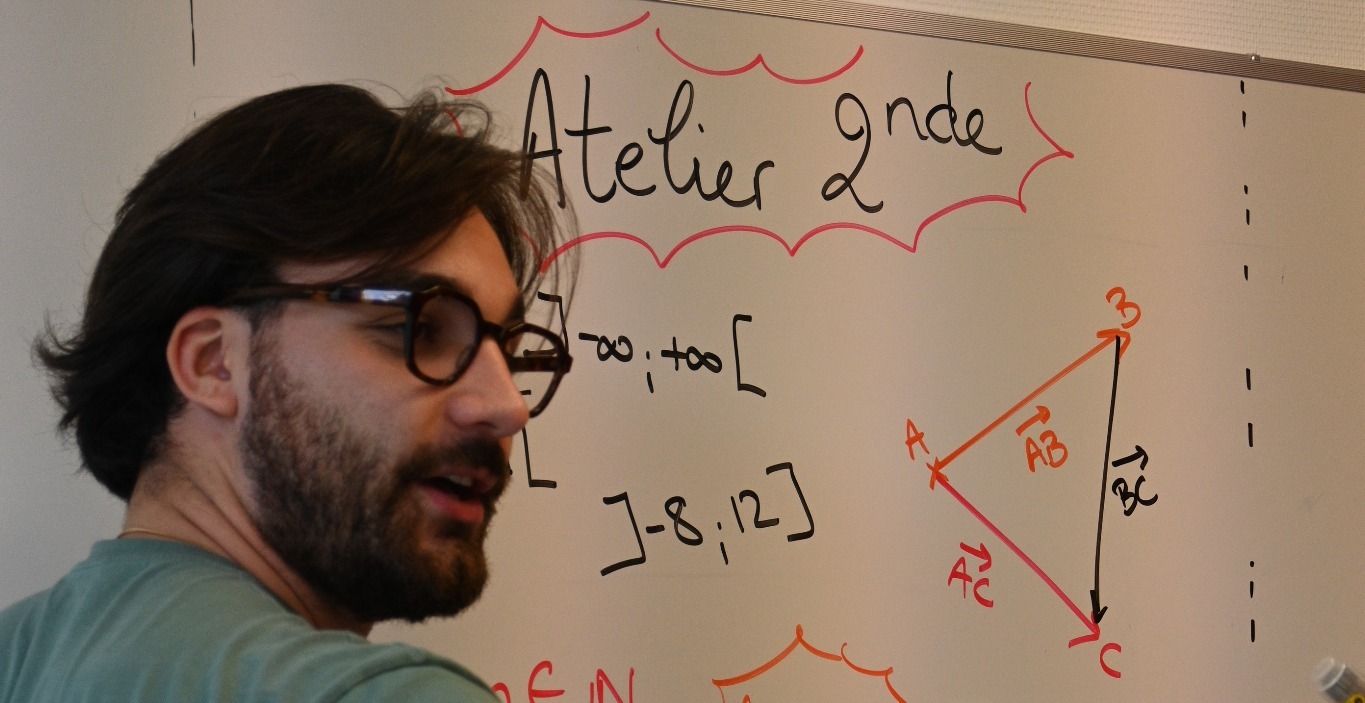 Atelier 2nde
]-∞;+∞[
[
]-8;12]
B
A
AB
BC
AC
C
∈ ℕ